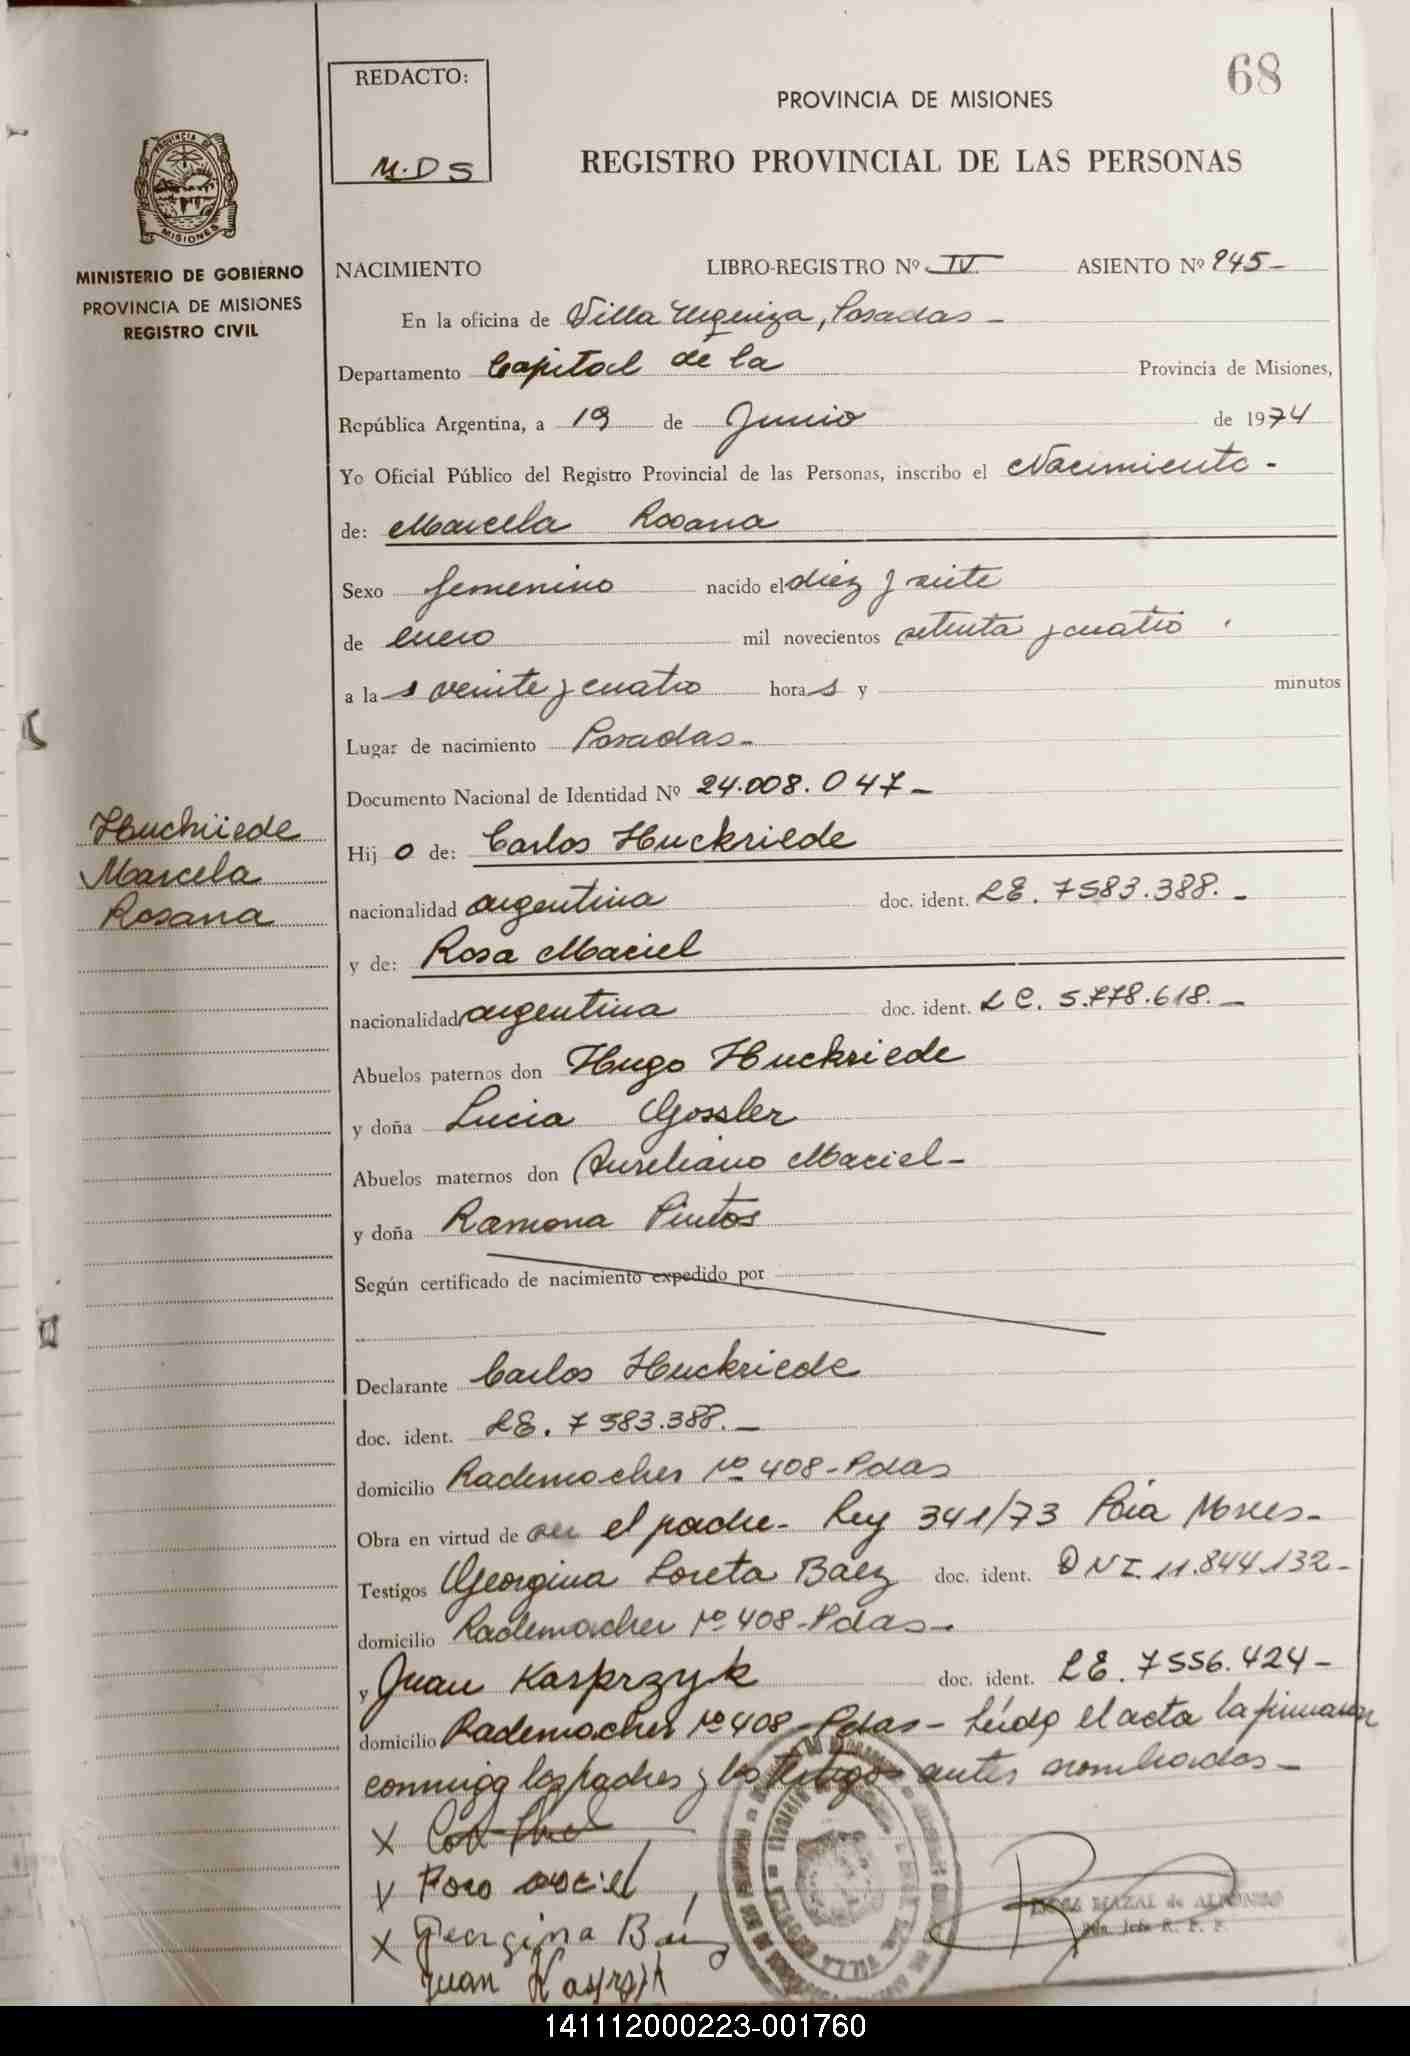 REDACTO:
M.D S
68
PROVINCIA DE MISIONES
REGISTRO PROVINCIAL DE LAS PERSONAS
PROVINCIA DE
MISIONES
MINISTERIO DE GOBIERNO
PROVINCIA DE MISIONES
REGISTRO CIVIL
NACIMIENTO LIBRO-REGISTRO Nº IV ASIENTO Nº 945-
En la oficina de Villa Urquiza, Posadas -
Departamento Capital de la Provincia de Misiones,
República Argentina, a 19 de Junio de 1974
Yo Oficial Público del Registro Provincial de las Personas, inscribo el Nacimiento -
de: Marcela Rosana
Sexo femenino nacido el diez y siete
de enero mil novecientos setenta y cuatro
a la s veinte y cuatro hora s y minutos
Lugar de nacimiento Posadas-
Documento Nacional de Identidad Nº 24.008.047-
Huckriede
Marcela
Rosana
Hij o de: Carlos Huckriede
nacionalidad argentina doc. ident. LE. 7583.388.-
y de: Rosa Maciel
nacionalidad argentina doc. ident. L C. 5.778.618.-
Abuelos paternos don Hugo Huckriede
y doña Lucia Gossler
Abuelos maternos don Aureliano Maciel-
y doña Ramona Pintos
Según certificado de nacimiento expedido por
Declarante Carlos Huckriede
doc. ident. LE. 7583.388.-
domicilio Rademacher Nº 408-Pdas
Obra en virtud de ser el padre- Ley 341/73 Pcia Mnes-
Testigos Georgina Loreta Baez doc. ident. DNI 11.844.132-
domicilio Rademacher Nº 408-Pdas-
y Juan Kasprzyk doc. ident. LE. 7556.424-
domicilio Rademacher Nº 408-Pdas- Leída el acta la firmaron
conmigo los padres y los testigos antes nombrados-
X
X Rosa maciel
X Georgina Báez
Juan Kasprzyk
MAZAL de ALFONSO
141112000223-001760